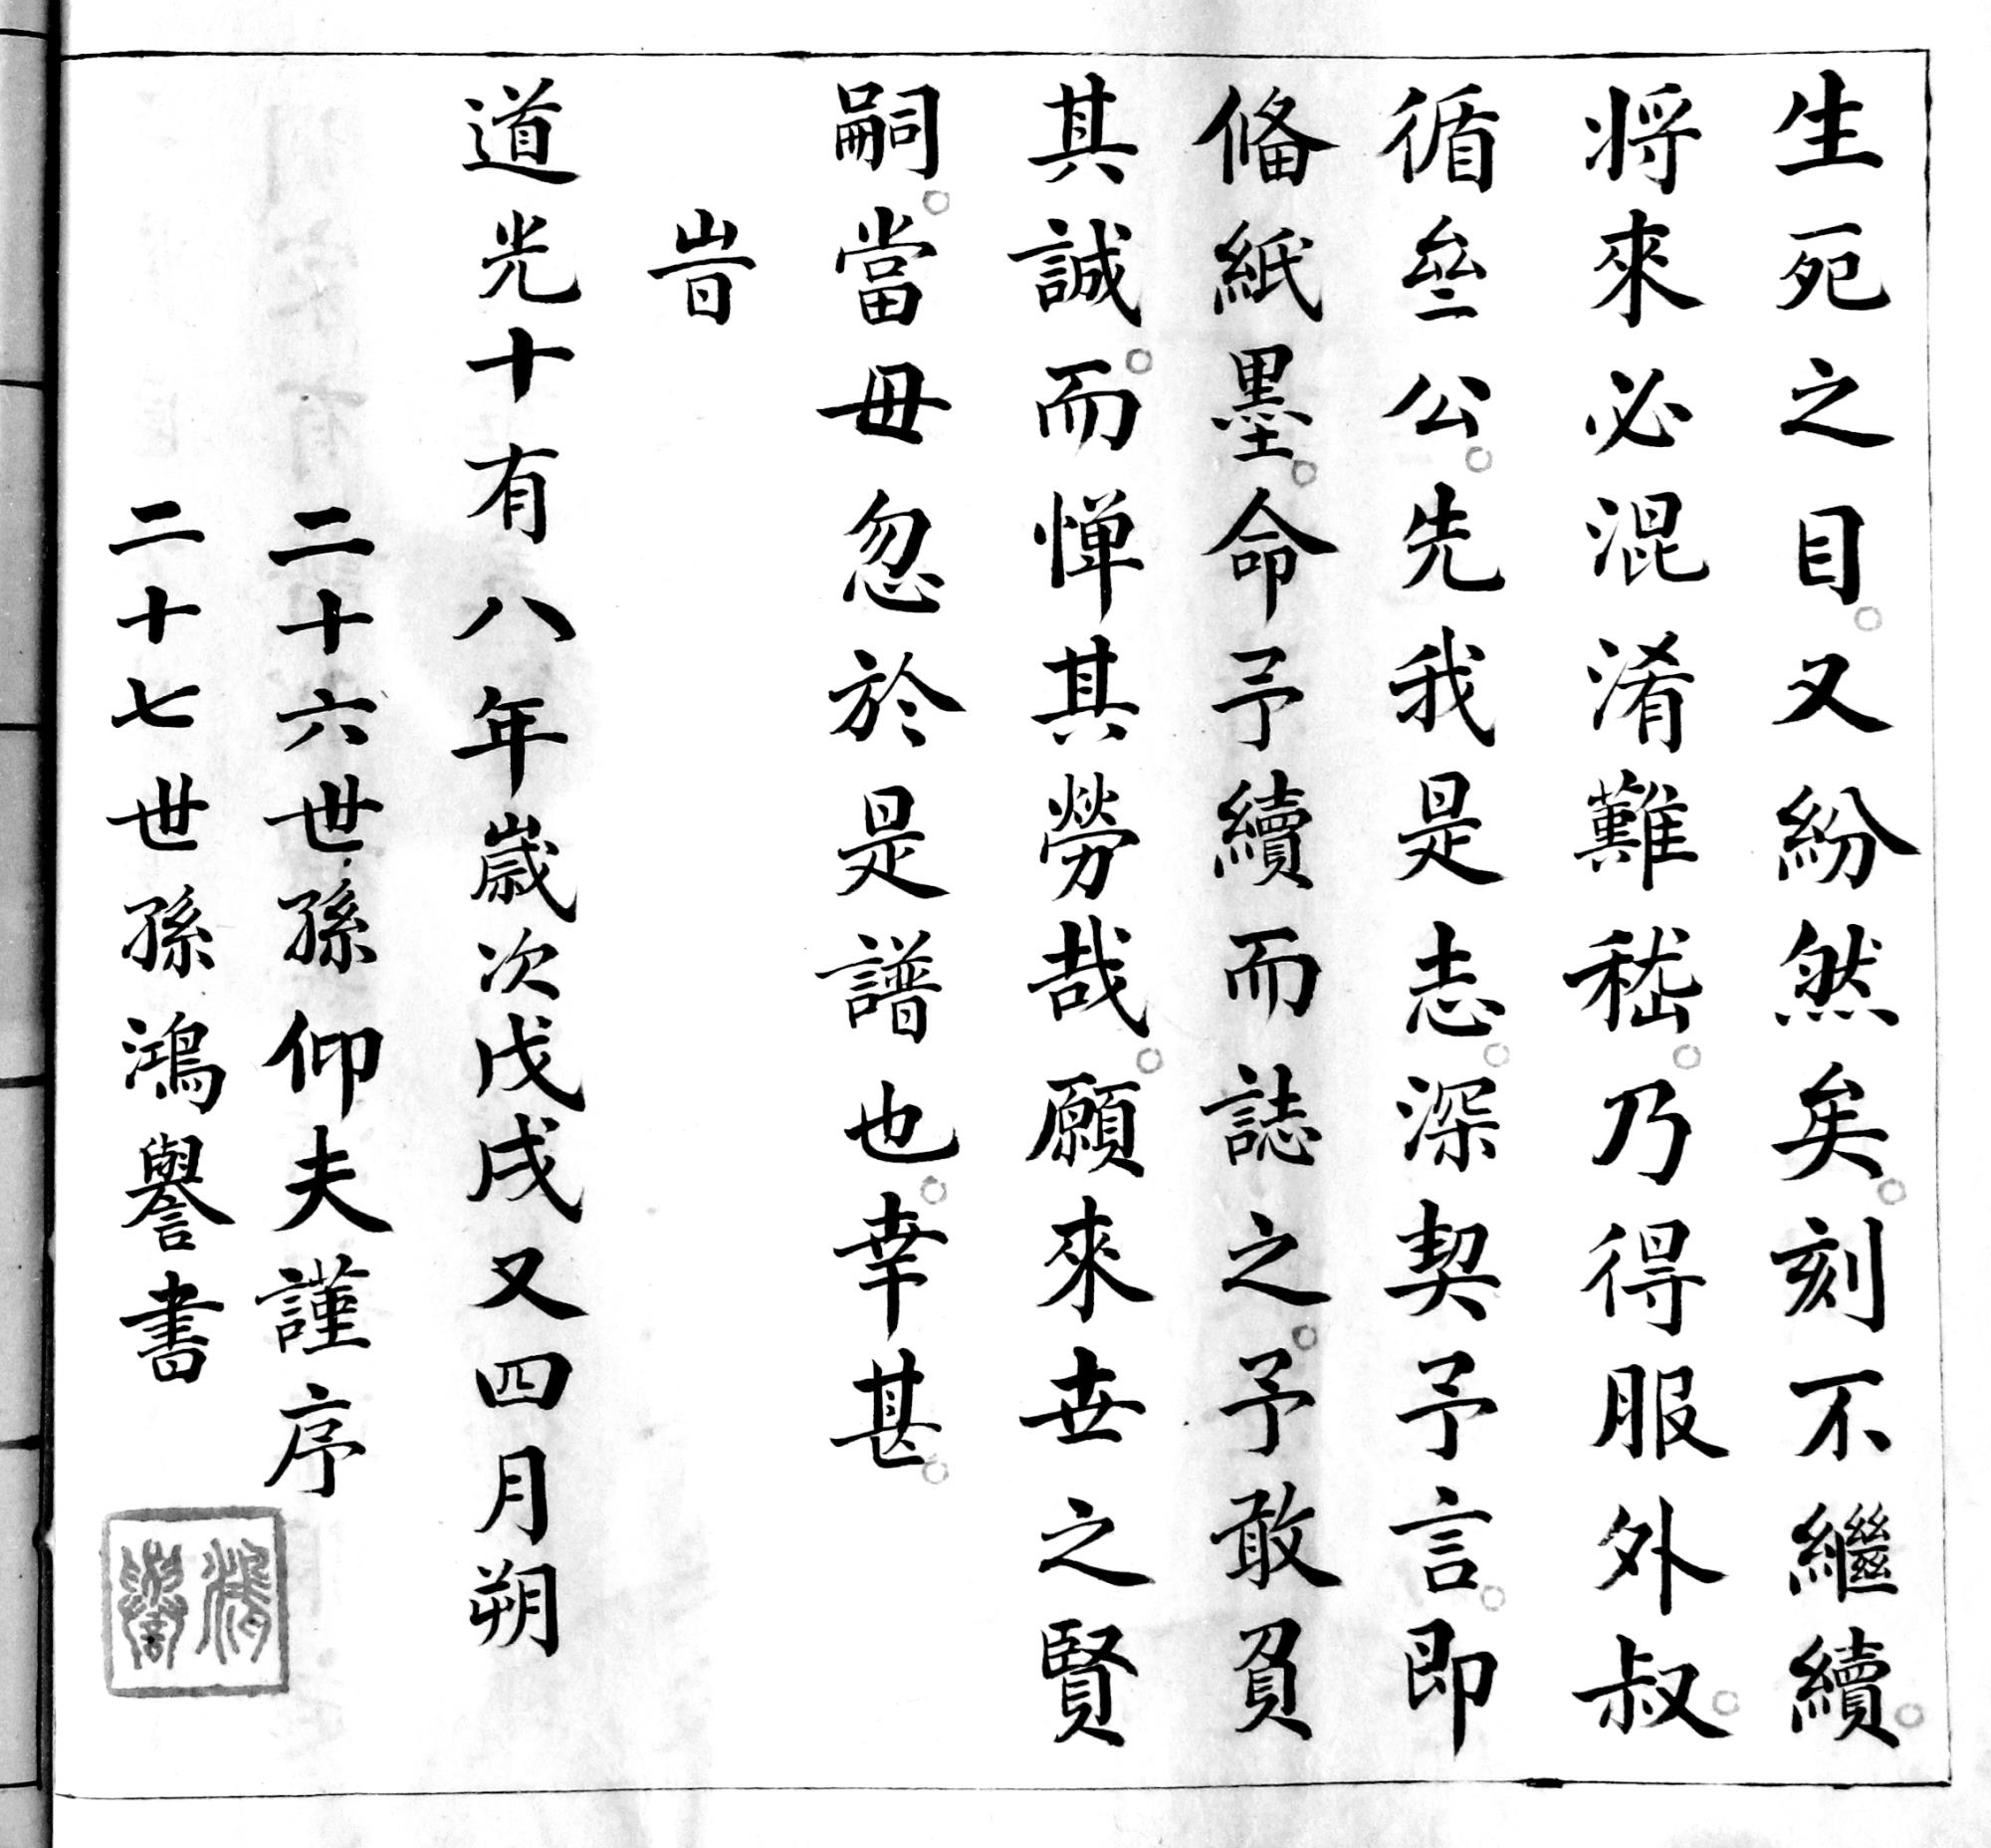 生死之目。又紛然矣。刻不繼續。
将來必混淆難嵇。乃得服外叔
循叄公。先我是志。深契予言。即
俻紙墨。命予續而誌之。予敢負
其誠。而惮其勞哉。願來世之賢
嗣。當毋忽於是譜也。幸甚。
旹
道光十有八年歲次戊戌又四月朔
二十六世孫仰夫謹序
二十七世孫鴻譽書
鴻譽